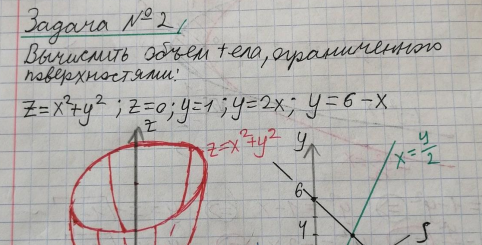 Задача № 2.
Вычислить объем тела, ограниченного
поверхностями:
z=x²+y² ; z=0; y=1 ; y=2x; y=6-x
z
z=x²+y²
y
x=y/2
6
4